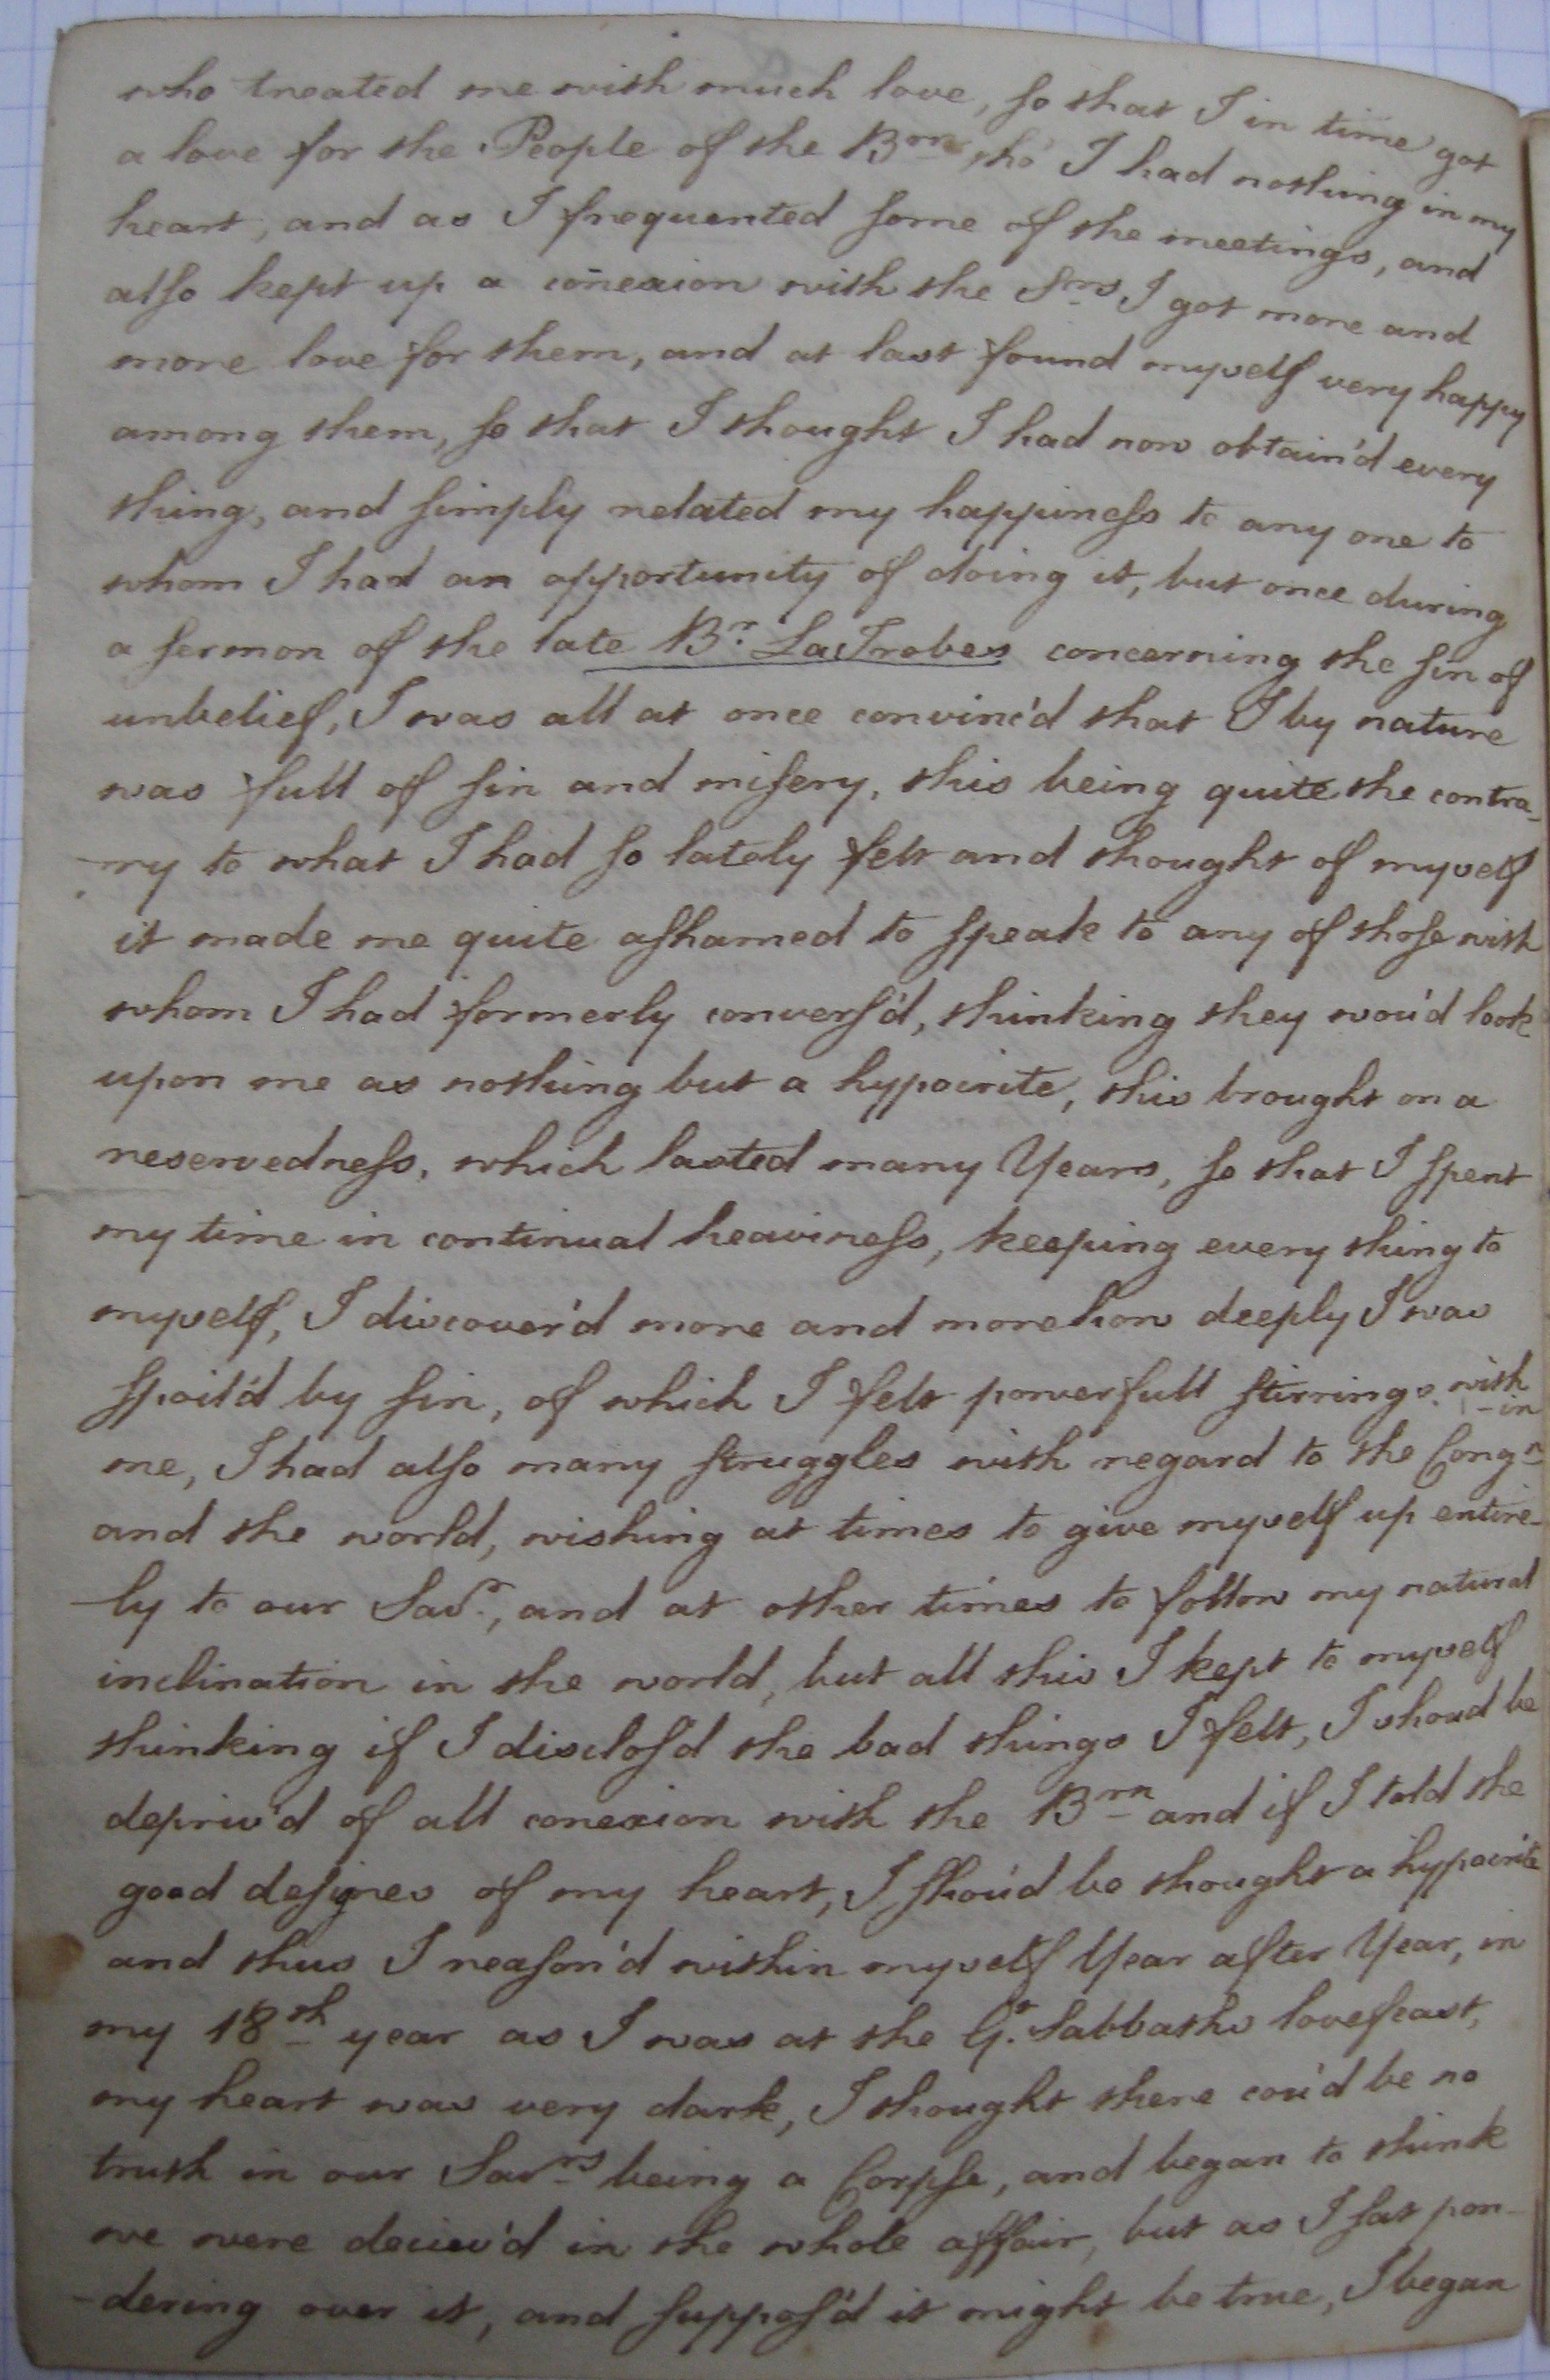 who treated me with much love, so that I in time got
a love for the People of the Brn tho' I had nothing in my
heart, and as I frequented some of the meetings, and
also kept up a conexion with the Srs I got more and
more love for them, and at last found myself very happy
among them, so that I thought I had now obtain'd every
thing, and simply related my happiness to any one to
whom I had an opportunity of doing it, but once during
a sermon of the late Br. LaTrobes concerning the sin of
unbelief, I was all at once convinc'd that I by nature
was full of sin and misery, this being quite the contra-
-ry to what I had so lately felt and thought of myself
it made me quite ashamed to speak to any of those with
whom I had formerly convers'd, thinking they wou'd look
upon me as nothing but a hypocrite, this brought on a
reservedness, which lasted many Years, so that I spent
my time in continual heaviness, keeping every thing to
myself, I discover'd more and more how deeply I was
spoil'd by sin, of which I felt powerfull stirrings with
-in
me, I had also many struggles with regard to the Congn
and the world, wishing at times to give myself up entire-
-ly to our Savr., and at other times to follow my natural
inclination in the world, but all this I kept to myself
thinking if I disclos'd the bad things I felt, I shoud be
depriv'd of all conexion with the Brn and if I told the
good desires of my heart, I shou'd be thought a hypocrite
and thus I reason'd within myself Year after Year, in
my 18th year as I was at the Gt. Sabbaths lovefeast,
my heart was very dark, I thought there cou'd be no
truth in our Savrs being a Corpse, and began to think
we were deciev'd in the whole affair, but as I sat pon-
-dering over it, and suppos'd it might be true, I began